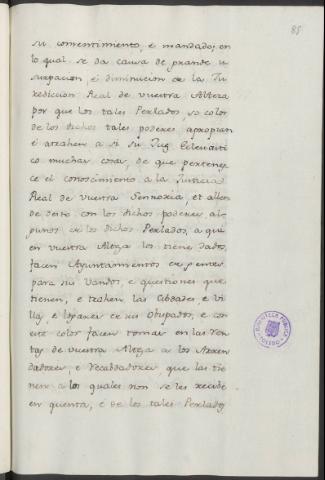 85
su consentimiento, e mandado; en
lo qual se da causa de grande u
surpacion, é diminucion de la Ju
redicion Real de vuestra Alteza
por que los tales Perlados, so color
de los dichos tales poderes apropian
é atrahen a si su Juz Eclesiasti
co muchas cosas de que pertenes
ce el conoscimiento a la Justicia
Real de vuestra Sennoria, et allen
de desto con los dichos poderes al
gunos de los dichos Perlados, a qui
en vuestra Alteza los tiene dados,
facen Ayuntamientos de gentes
para sus vandos, e questiones que
tienen, e trahen las Cibdades e Vi
llas, e logares de sus Obispados, e con
este color facen tomar en las Ren
tas de vuestra Alteza a los Arren
dadores, e Recabdadores, que las tie
nen a los quales non se les recibe
en quenta, é de los tales Perlados
BIBLIOTECA PUBLICA
TOLEDO